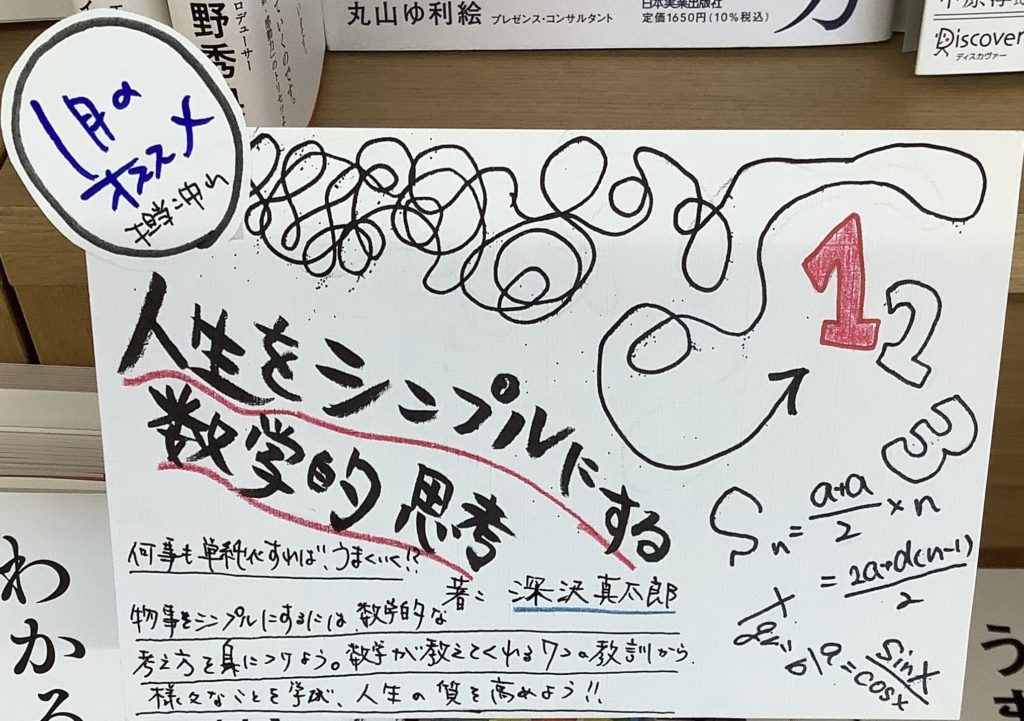 丸山ゆ利絵 プレゼンス・コンサルタント
日本実業出版社
定価1650円(10%税込)
Discover
ディスカヴァー
ロデューサー
野秀
1月の
オススメ
人生をシンプルにする
数学的思考
何事も単純化すれば、うまくいく!?
著: 深沢真太郎
物事をシンプルにするには数学的な
考え方を身につけよう。数学が教えてくれる7つの教訓から
様々なことを学び、人生の質を高めよう!!
1
2
3
Sn = a+a/2 × n
= 2a+d(n-1)/2
= sinx/cosx
わかる
う